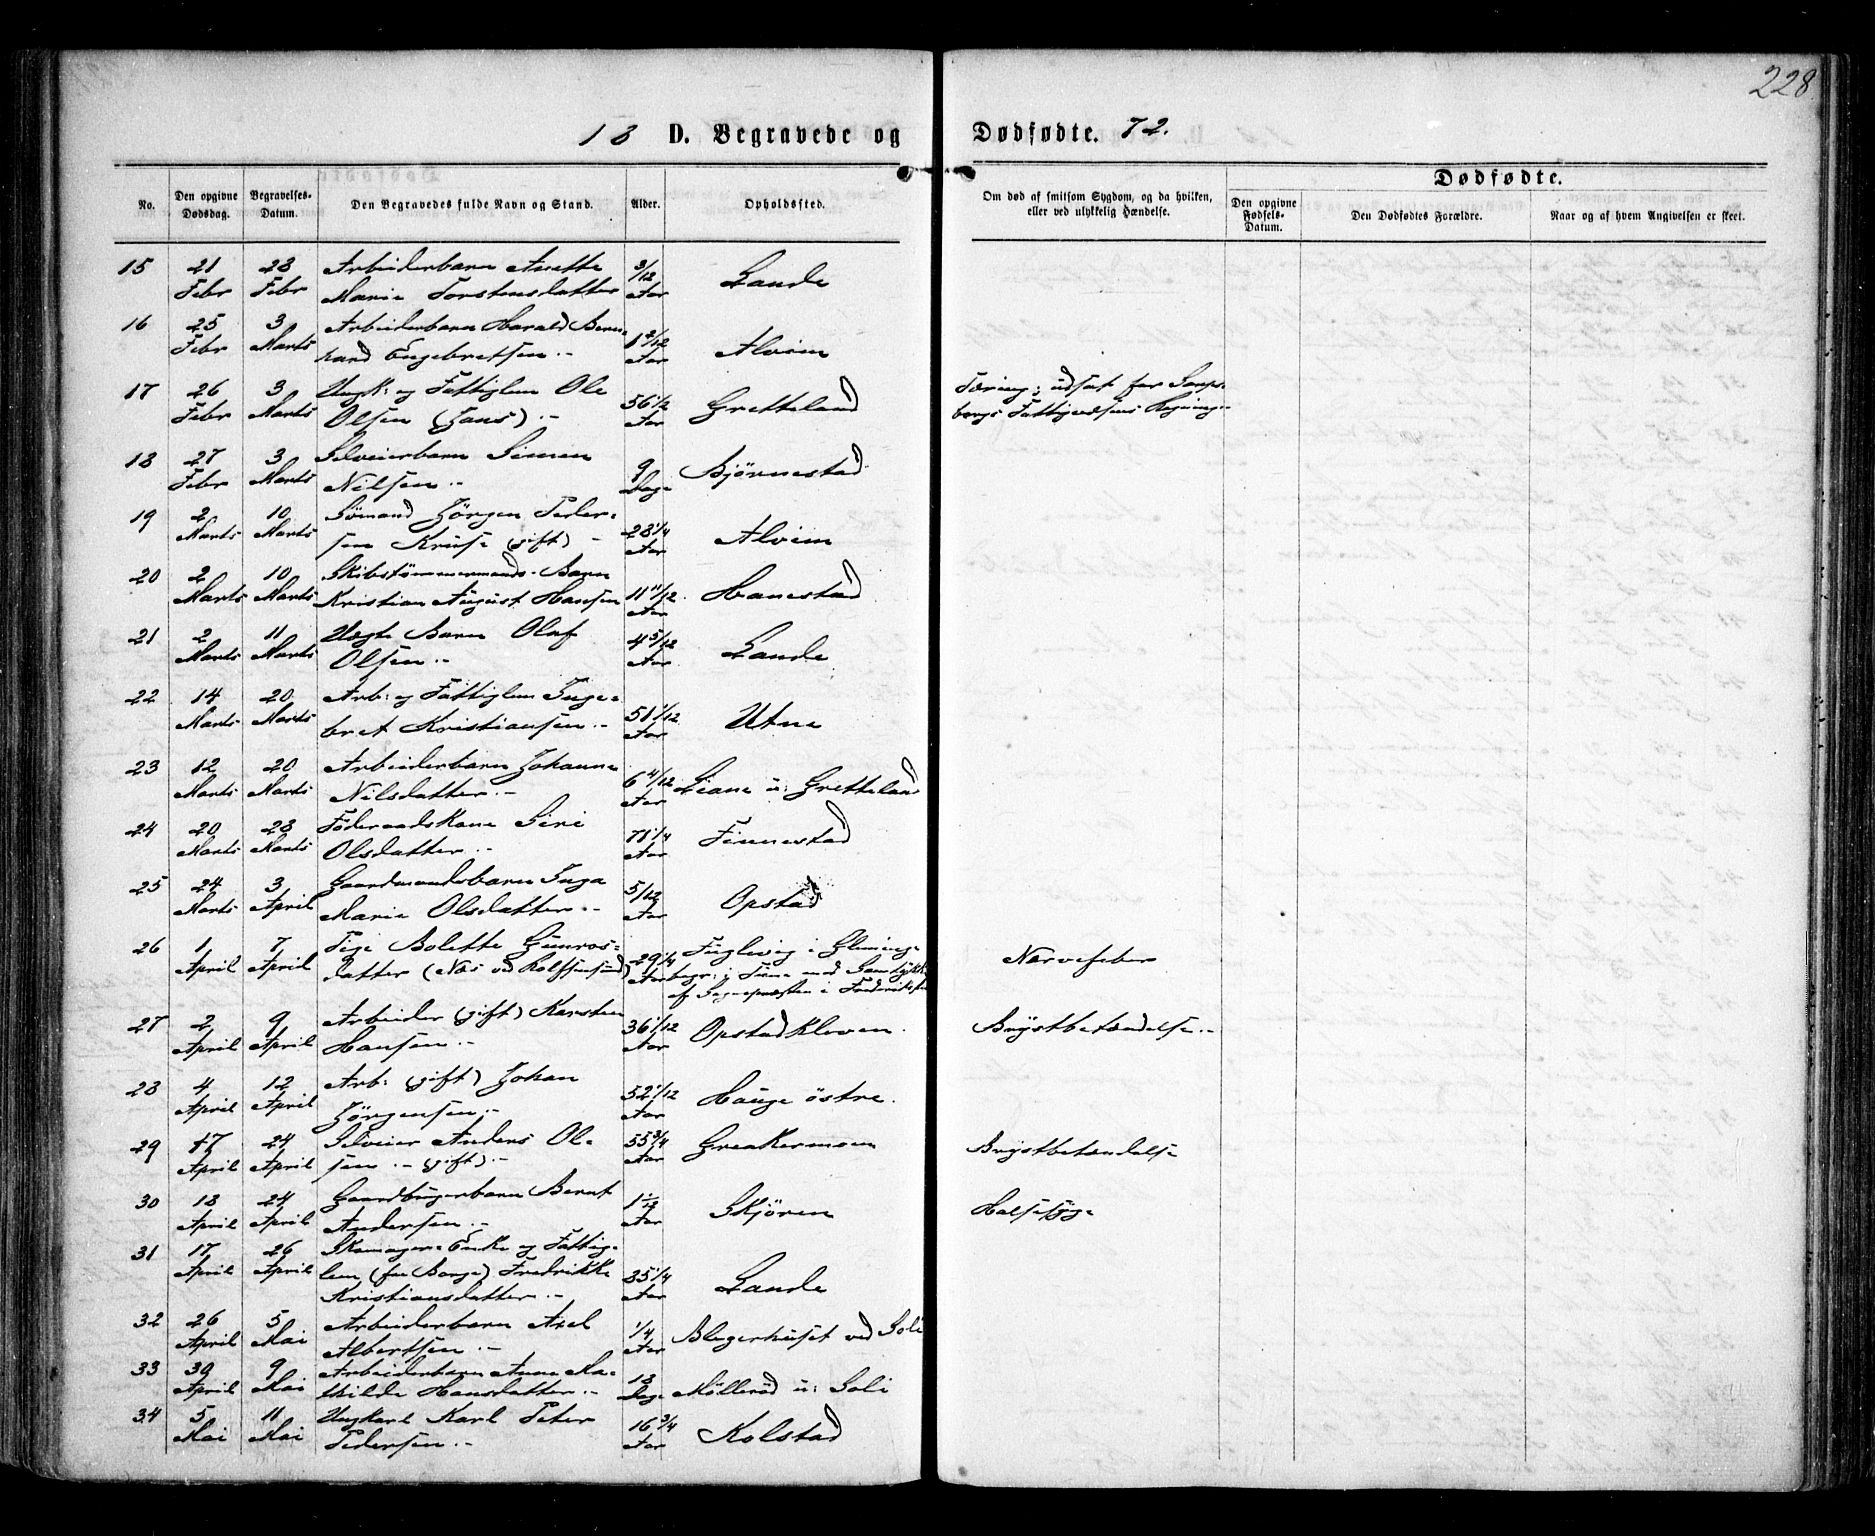 228
18 D. Begravede og Dødfødte. 72.
No. Den opgivne Dødsdag. Begravelses-Datum. Den Begravedes fulde Navn og Stand. Alder. Opholdssted. Om død af smitsom Sygdom, og da hvilken, eller ved ulykkelig Hændelse. Dødfødte. Den opgivne Fødsels-Datum. Den Dødfødtes Forældre. Naar og af hvem Angivelsen er skeet.
15 21 28 Arbeiderbarn Anette 3/12 Sande
Febr Febr Marie Torstensdatter Aar
16 25 3 Arbeiderbarn Harald Bern- 1 2/12 Alvim
Febr Marts hard Engebretsen .- Aar
17 26 3 Ungk: og Fattiglem Ole 56 1/2 Gretteland Tæring; udsat for Sarps-
Febr Marts Olsen (Jans) .- Aar borgs Fattigvæsens Regning.-
18 27 3 Selveierbarn Simen 9 Bjørnestad
Febr Marts Nilsen .- Dage
19 2 10 Sømand Jörgen Peder- 28 1/4 Alvim
Marts Marts sen Kruse (gift) - Aar
20 2 10 Skibstømmermands-Barn Hanestad
Marts Marts Kristian August Hansen 11 11/12 Aar
21 2 11 Uægte Barn Olaf 4 5/12 Sande
Marts Marts Olsen .- Aar
22 14 20 Arb: og Fattiglem Inge- 51 1/12 Utne
Marts Marts bret Kristiansen .- Aar
23 12 20 Arbeiderbarn Johanne 6 4/12 Liane u: Gretteland
Marts Marts Nilsdatter .- Aar
24 20 28 Föderaadskone Siri 71 1/4 Finnestad
Marts Marts Olsdatter .- Aar
25 24 3 Gaardmandsbarn Inga 5/12 Opstad
Marts April Marie Olsdatter .- Aar
26 1 7 Pige Bolette Gunros- 29 1/4 Fuglevig i Glemminge Nervefeber
April April datter (Næs ved Rolfsøsund) Aar begr: i Tune med Samtykke
af Sognepræsten i Fredrikstad
27 2 9 Arbeider (gift) Karsten 36 1/12 Opstadkleven. Brÿstbetændelse.-
April April Hansen .- Aar
28 4 12 Arb: (gift) Johan 52 1/12 Hauge östre.
April April Jörgensen .- Aar
29 17 24 Selveier Anders Ol- 55 3/4 Greakermoen Brÿstbetændelse
April April sen .- (gift) .- Aar
30 18 24 Gaardbrugerbarn Bernt 1 1/12 Skjören Halssÿge
April April Andersen .- Aar
31 17 26 Skomager-Enke og Fattig-
April April lem (fra Borge) Fredrikke 85 1/4 Sande
Kristiansdatter .- Aar
32 26 5 Arbeiderbarn Axel 1/4 Blegerhuset ved Soli
April Mai Albertsen .- Aar
33 30 9 Arbeiderbarn Anne Ma- 18 Mölleröd u: Soli
April Mai thilde Hansdatter .- Dage
34 5 11 Ungkarl Karl Peter 16 3/4 Kolstad
Mai Mai Pedersen .- Aar